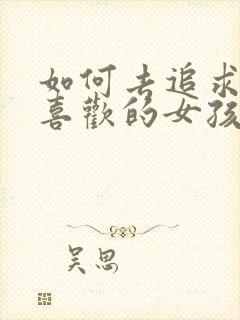 如何去追求
喜歡的女孩
吴思